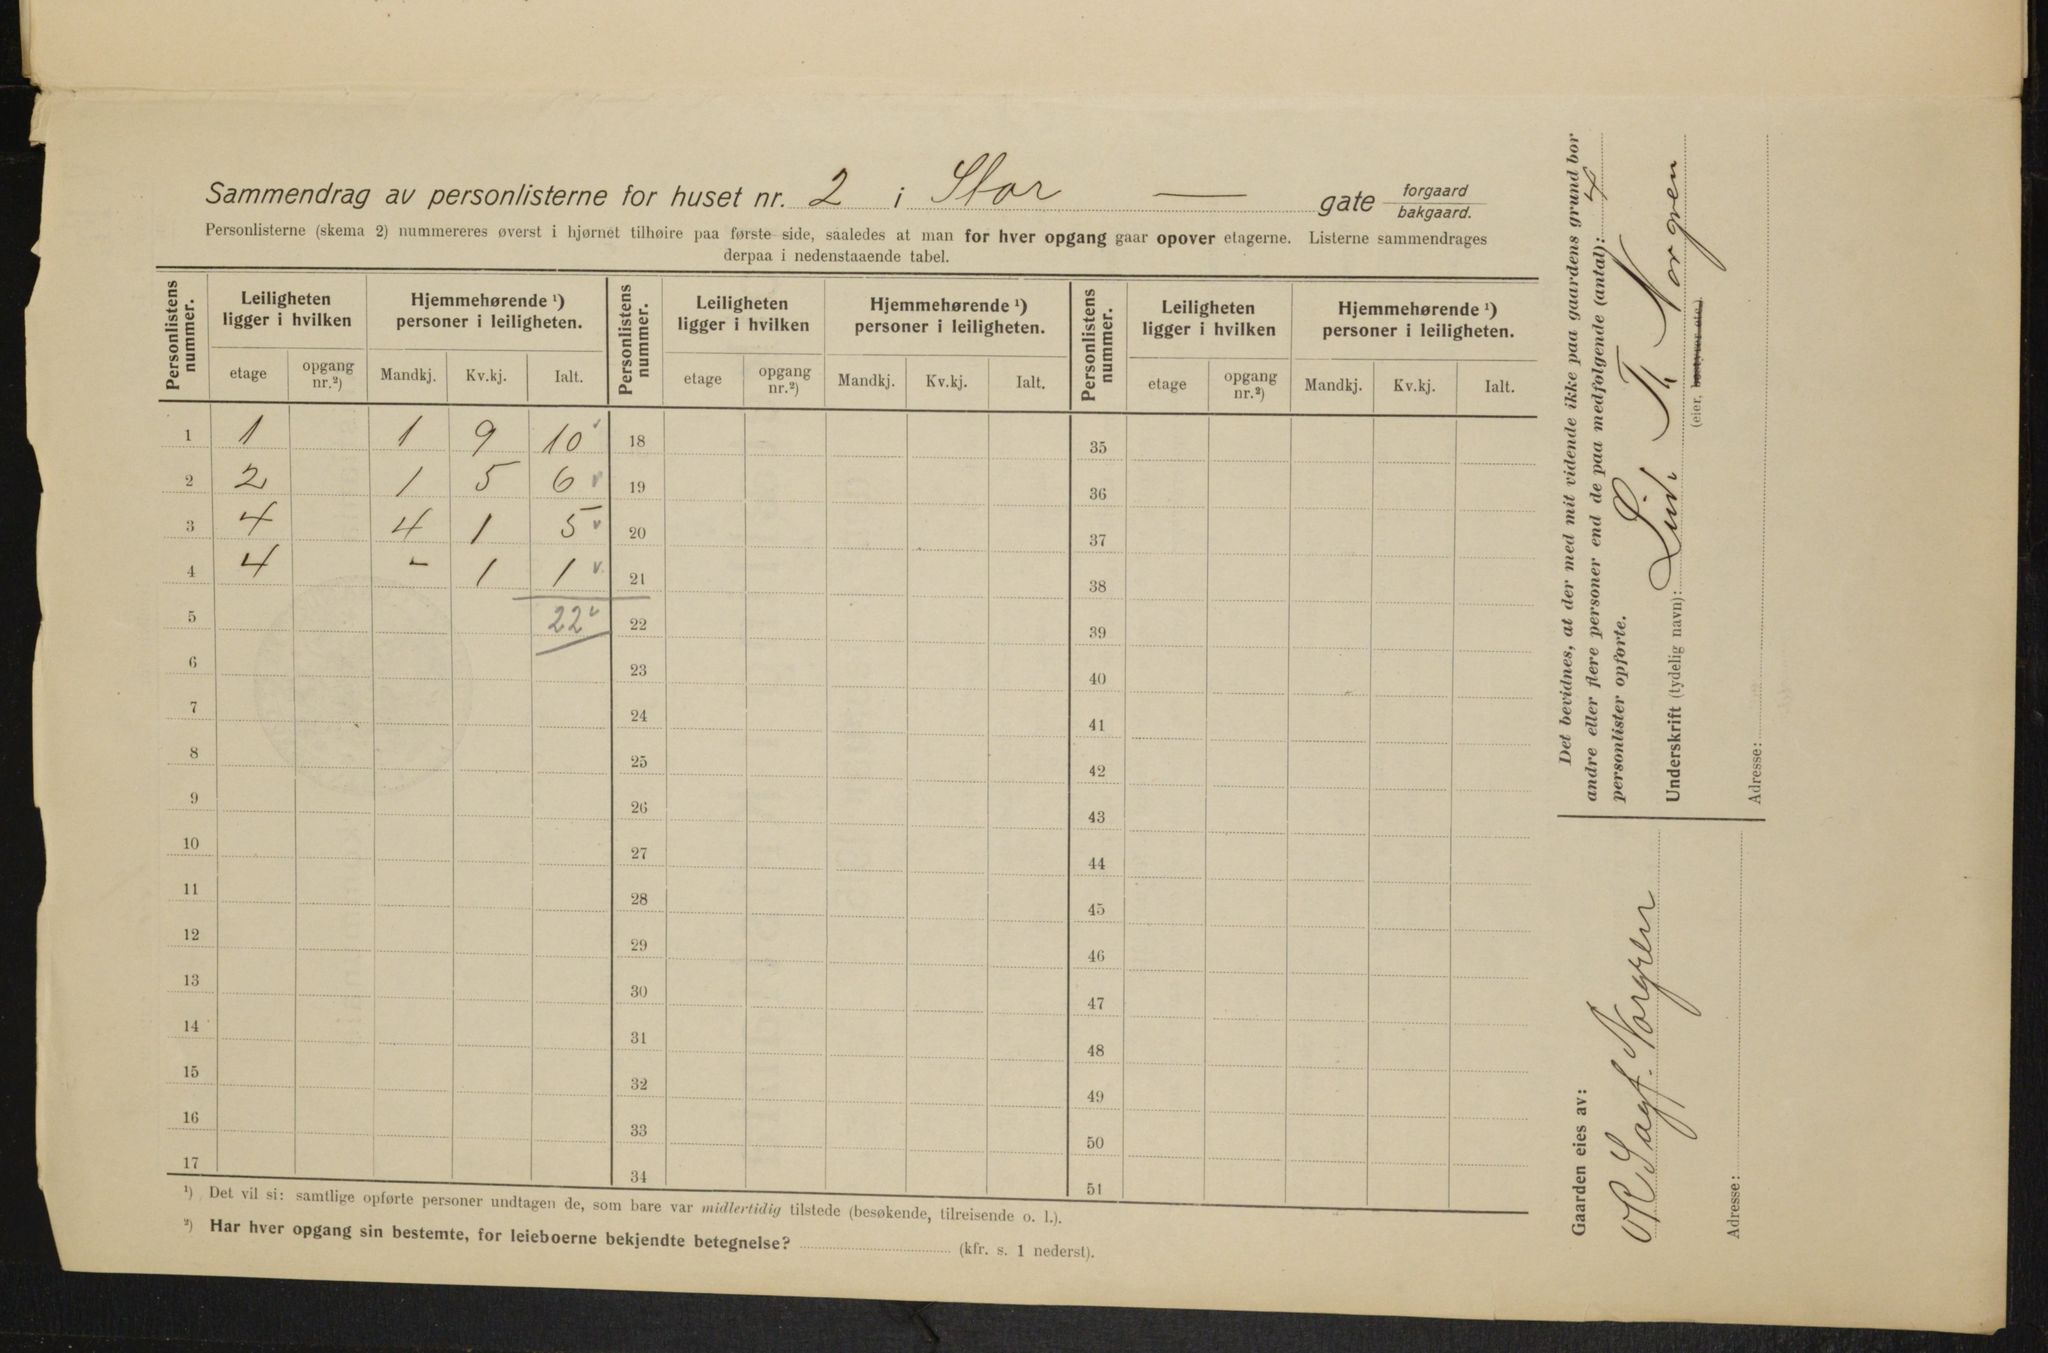 Sammendrag av personlisterne for huset nr. 2 i Stor — gate forgaard bakgaard.
Personlisterne (skema 2) nummereres øverst i hjørnet tilhøire paa første side, saaledes at man for hver opgang gaar opover etagerne. Listerne sammendrages
derpaa i nedenstaaende tabel.
Personlistens nummer. Leiligheten ligger i hvilken Hjemmehørende ¹) personer i leiligheten. Personlistens nummer. Leiligheten ligger i hvilken Hjemmehørende ¹) personer i leiligheten. Personlistens nummer. Leiligheten ligger i hvilken Hjemmehørende ¹) personer i leiligheten.
etage opgang nr.²) Mandkj. Kv.kj. Ialt. etage opgang nr.²) Mandkj. Kv.kj. Ialt. etage opgang nr.²) Mandkj. Kv.kj. Ialt.
1 1 1 9 10 18 35
2 2 1 5 6 19 36
3 4 4 1 5 20 37
4 4 - 1 1 21 38
5 22 22 39
6 23 40
7 24 41
8 25 42
9 26 43
10 27 44
11 28 45
12 29 46
13 30 47
14 31 48
15 32 49
16 33 50
17 34 51
¹) Det vil si: samtlige opførte personer undtagen de, som bare var midlertidig tilstede (besøkende, tilreisende o. l.).
²) Har hver opgang sin bestemte, for leieboerne bekjendte betegnelse? (kfr. s. 1 nederst).
Det bevidnes, at der med mit vidende ikke paa gaardens grund bor
andre eller flere personer end de paa medfølgende (antal): 4
personlister opførte.
Underskrift (tydelig navn): Lud. Th Norgren
(eier, bestyrer etc.)
Adresse:
Gaarden eies av:
Norgren
Adresse: